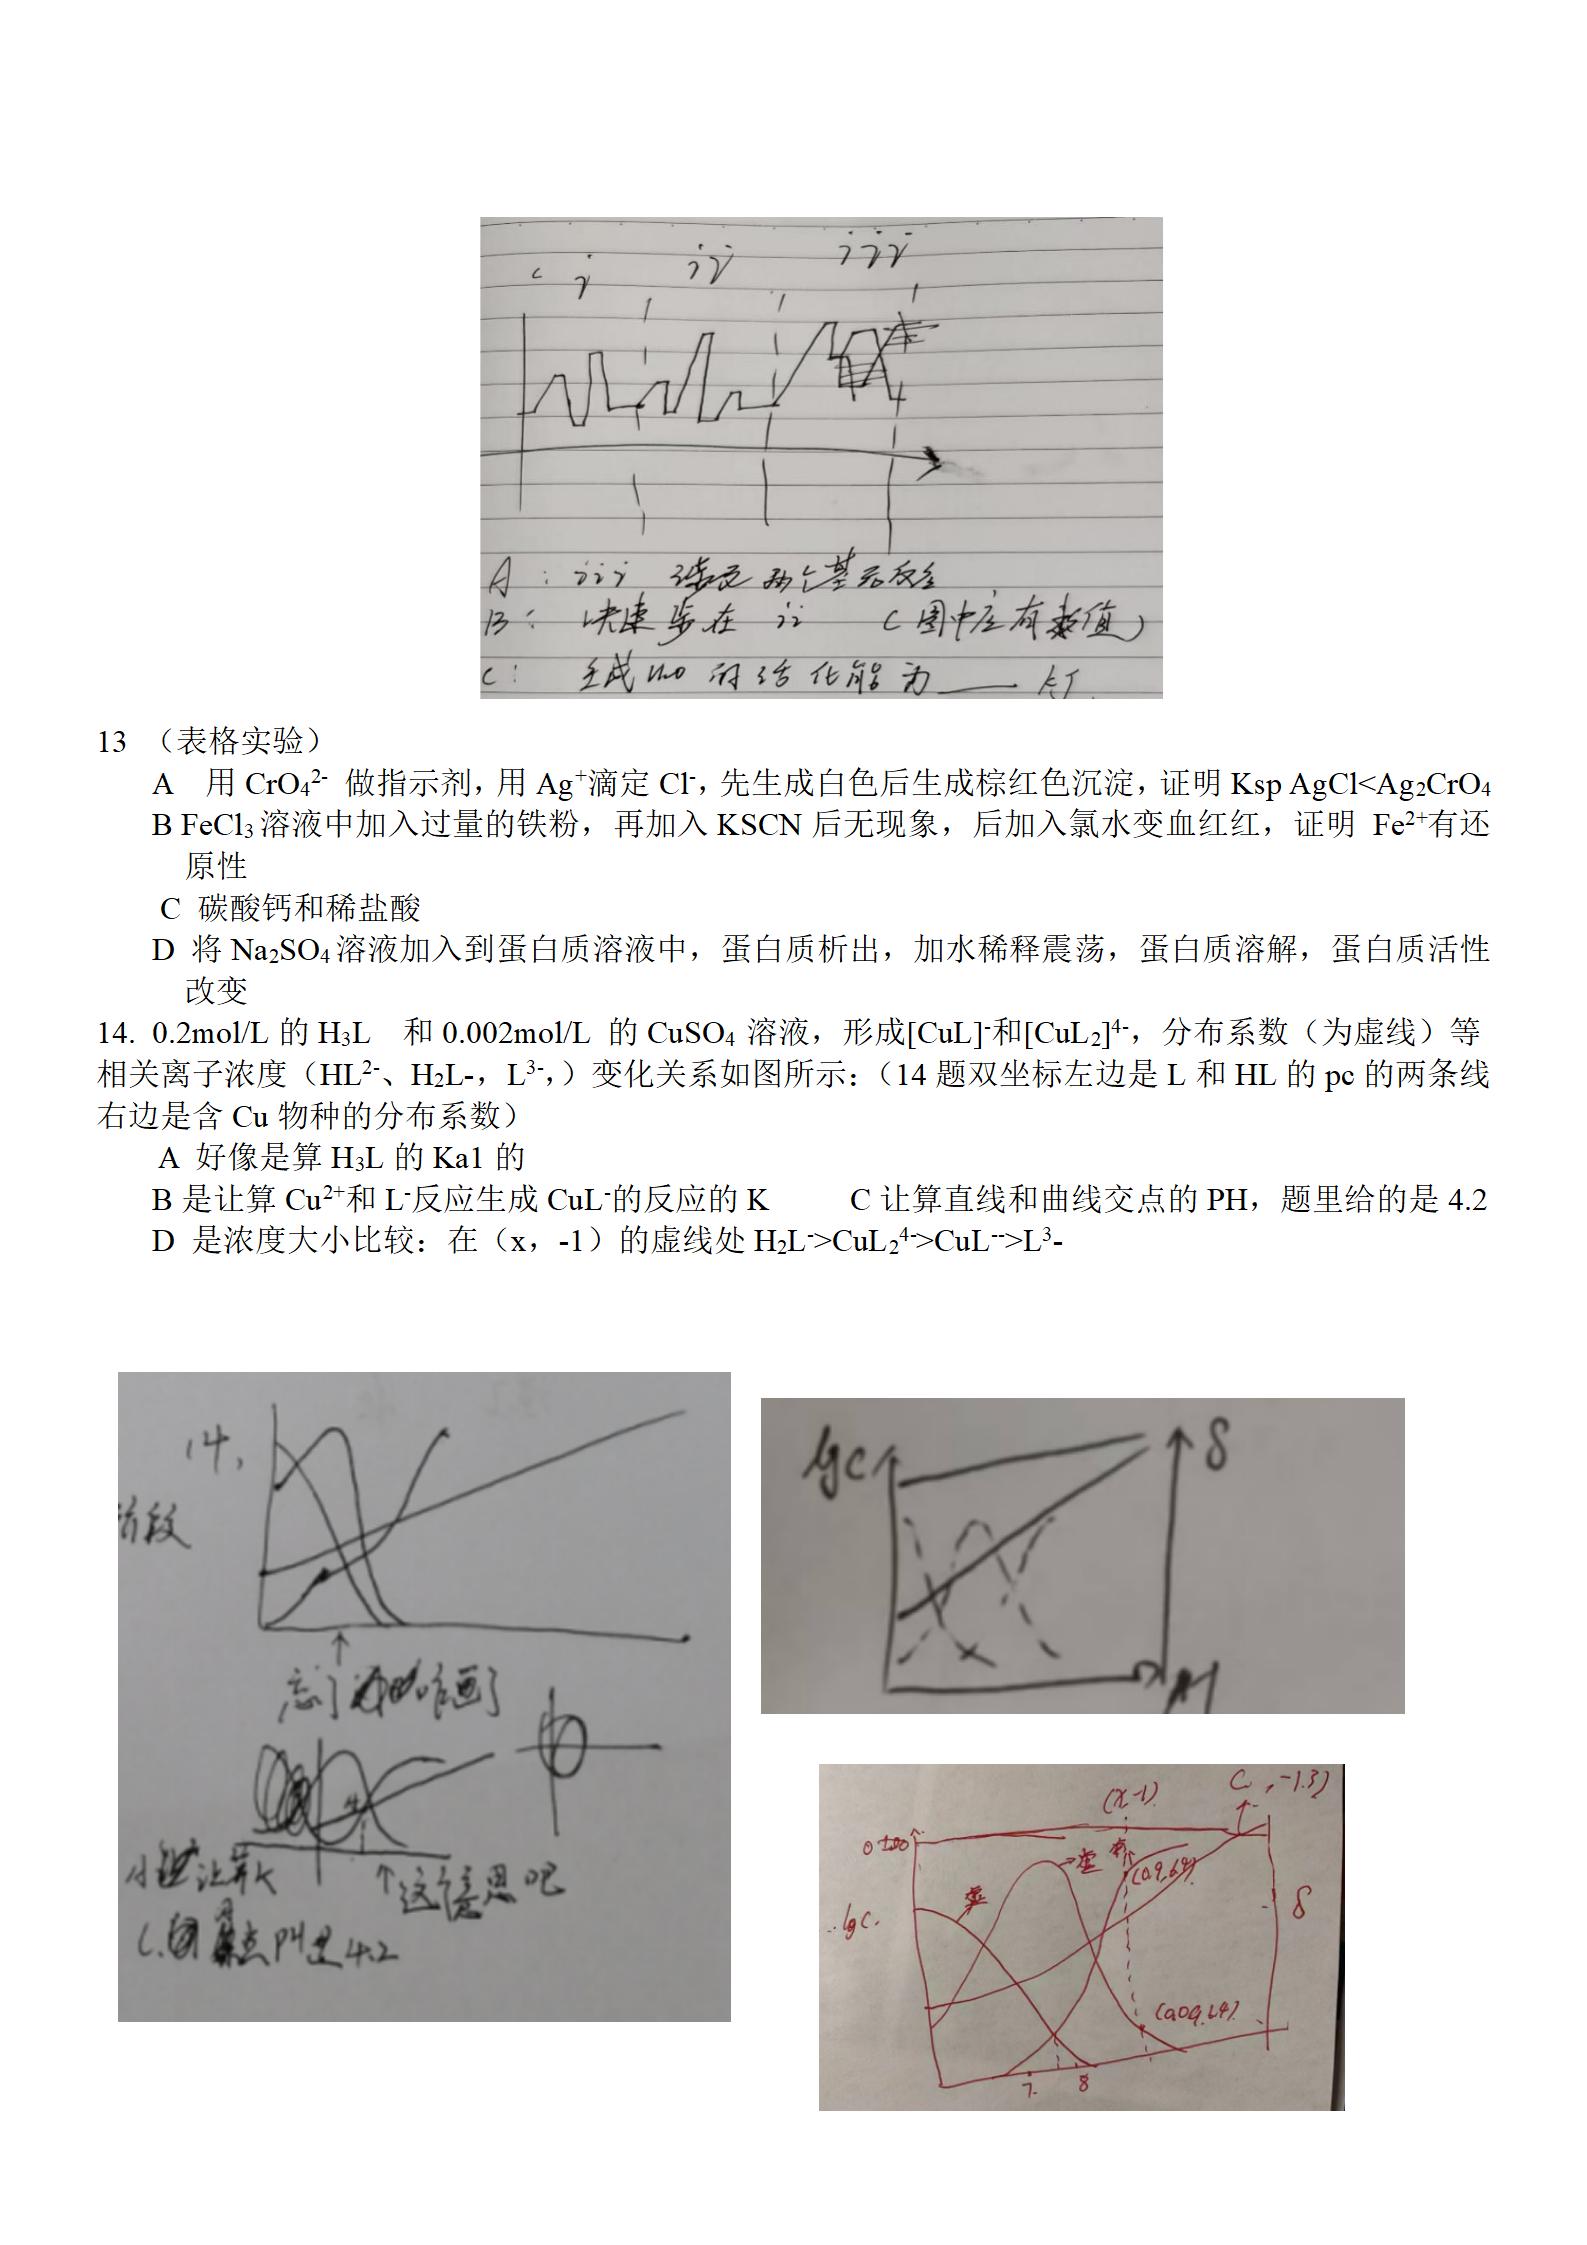 i ii iii
A: iii 涉及两个基元反应
B: 决速步在 ii (图中应有数值)
C: 生成H₂O的活化能为____kJ.
13 （表格实验）
A 用 CrO₄²⁻ 做指示剂，用 Ag⁺滴定 Cl⁻，先生成白色后生成棕红色沉淀，证明 Ksp AgCl<Ag₂CrO₄
B FeCl₃溶液中加入过量的铁粉，再加入 KSCN 后无现象，后加入氯水变血红红，证明 Fe²⁺有还
原性
C 碳酸钙和稀盐酸
D 将 Na₂SO₄溶液加入到蛋白质溶液中，蛋白质析出，加水稀释震荡，蛋白质溶解，蛋白质活性
改变
14. 0.2mol/L 的 H₃L 和 0.002mol/L 的 CuSO₄ 溶液，形成[CuL]⁻和[CuL₂]⁴⁻，分布系数（为虚线）等
相关离子浓度（HL²⁻、H₂L-，L³⁻，）变化关系如图所示：（14 题双坐标左边是 L 和 HL 的 pc 的两条线
右边是含 Cu 物种的分布系数）
A 好像是算 H₃L 的 Ka1 的
B 是让算 Cu²⁺和 L⁻反应生成 CuL⁻的反应的 K C 让算直线和曲线交点的 PH，题里给的是 4.2
D 是浓度大小比较：在（x，-1）的虚线处 H₂L⁻>CuL₂⁴⁻>CuL⁻⁻>L³-
14,
阶段
忘了 咋画了
让算K
↑这个意思吧
C. 点PH是4.2
lgc δ
(x-1) ( , -1.3)
虚
虚
(0.9, 6.4)
lgc. δ
(0.09, 6.4)
7. 8